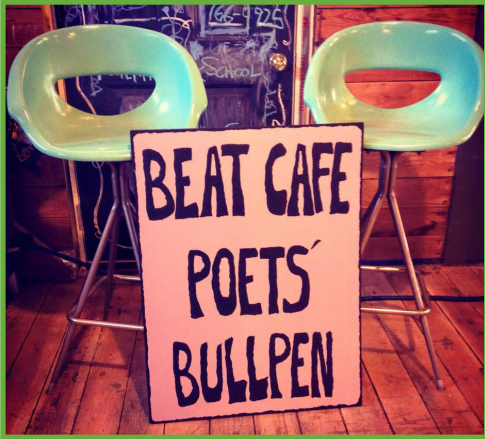 SCHOOL
BEAT CAFE
POETS´
BULLPEN